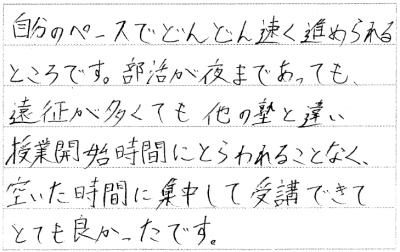 自分のペースでどんどん速く進められる
ところです。部活が夜まであっても、
遠征が多くても他の塾と違い
授業開始時間にとらわれることなく、
空いた時間に集中して受講できて
とても良かったです。